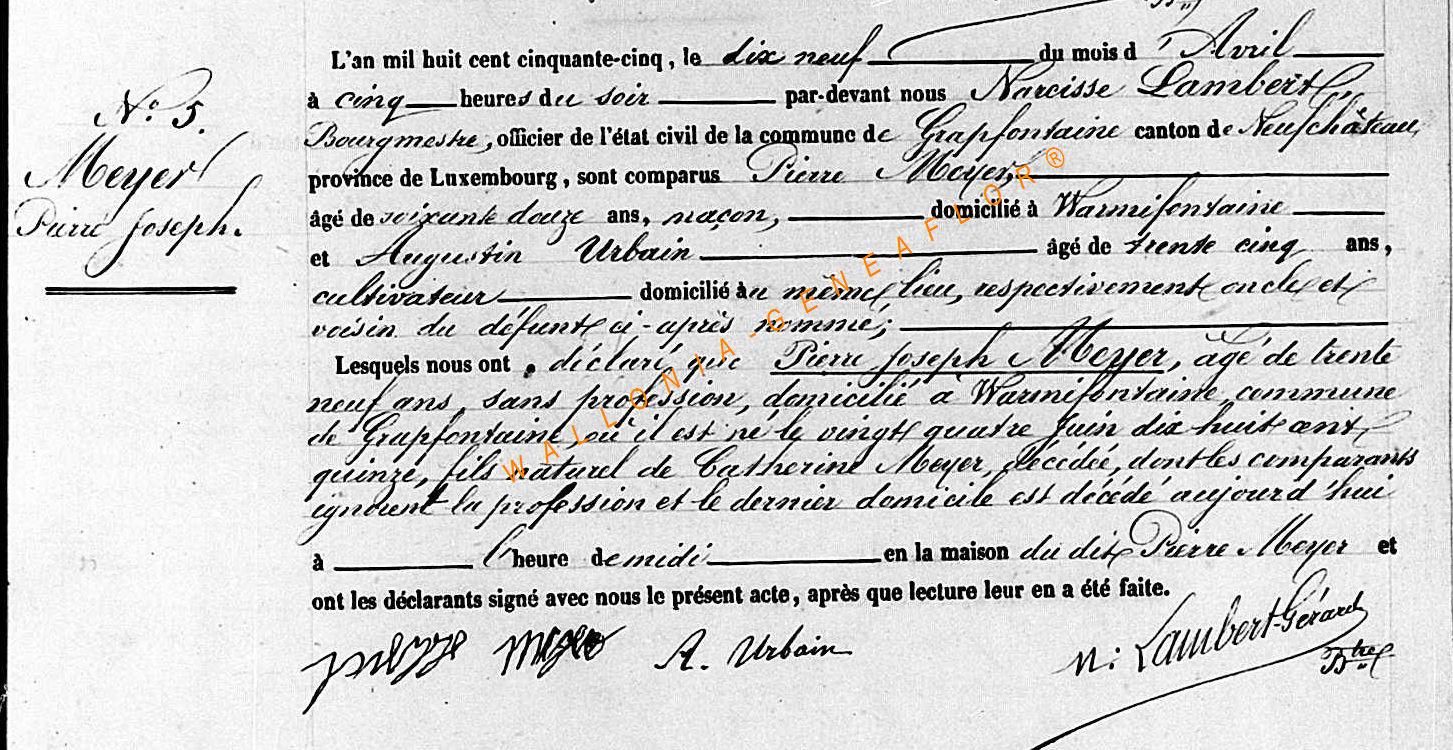 N.º 5.
Meyer
Pierre Joseph.
L'an mil huit cent cinquante-cinq, le dix neuf du mois d'Avril
à cinq heures du soir par-devant nous Narcisse Lambert,
Bourgmestre, officier de l'état civil de la commune de Grapfontaine canton de Neufchâteau,
province de Luxembourg, sont comparus Pierre Meyer,
âgé de soixante douze ans, maçon, domicilié à Warmifontaine
et Augustin Urbain âgé de trente cinq ans,
cultivateur domicilié au même lieu, respectivement oncle et
voisin du défunt ci-après nommé;
Lesquels nous ont déclaré que Pierre Joseph Meyer, âgé de trente
neuf ans, sans profession, domicilié à Warmifontaine, commune
de Grapfontaine, où il est né le vingt quatre Juin dix huit cent
quinze, fils naturel de Catherine Meyer, décédée, dont les comparants
ignorent la profession et le dernier domicile est décédé aujourd'hui
à l'heure de midi en la maison du dit Pierre Meyer et
ont les déclarants signé avec nous le présent acte, après que lecture leur en a été faite.
A. Urbain
N: Lambert-Gérard
WALLONIA-GENEAFLOR®